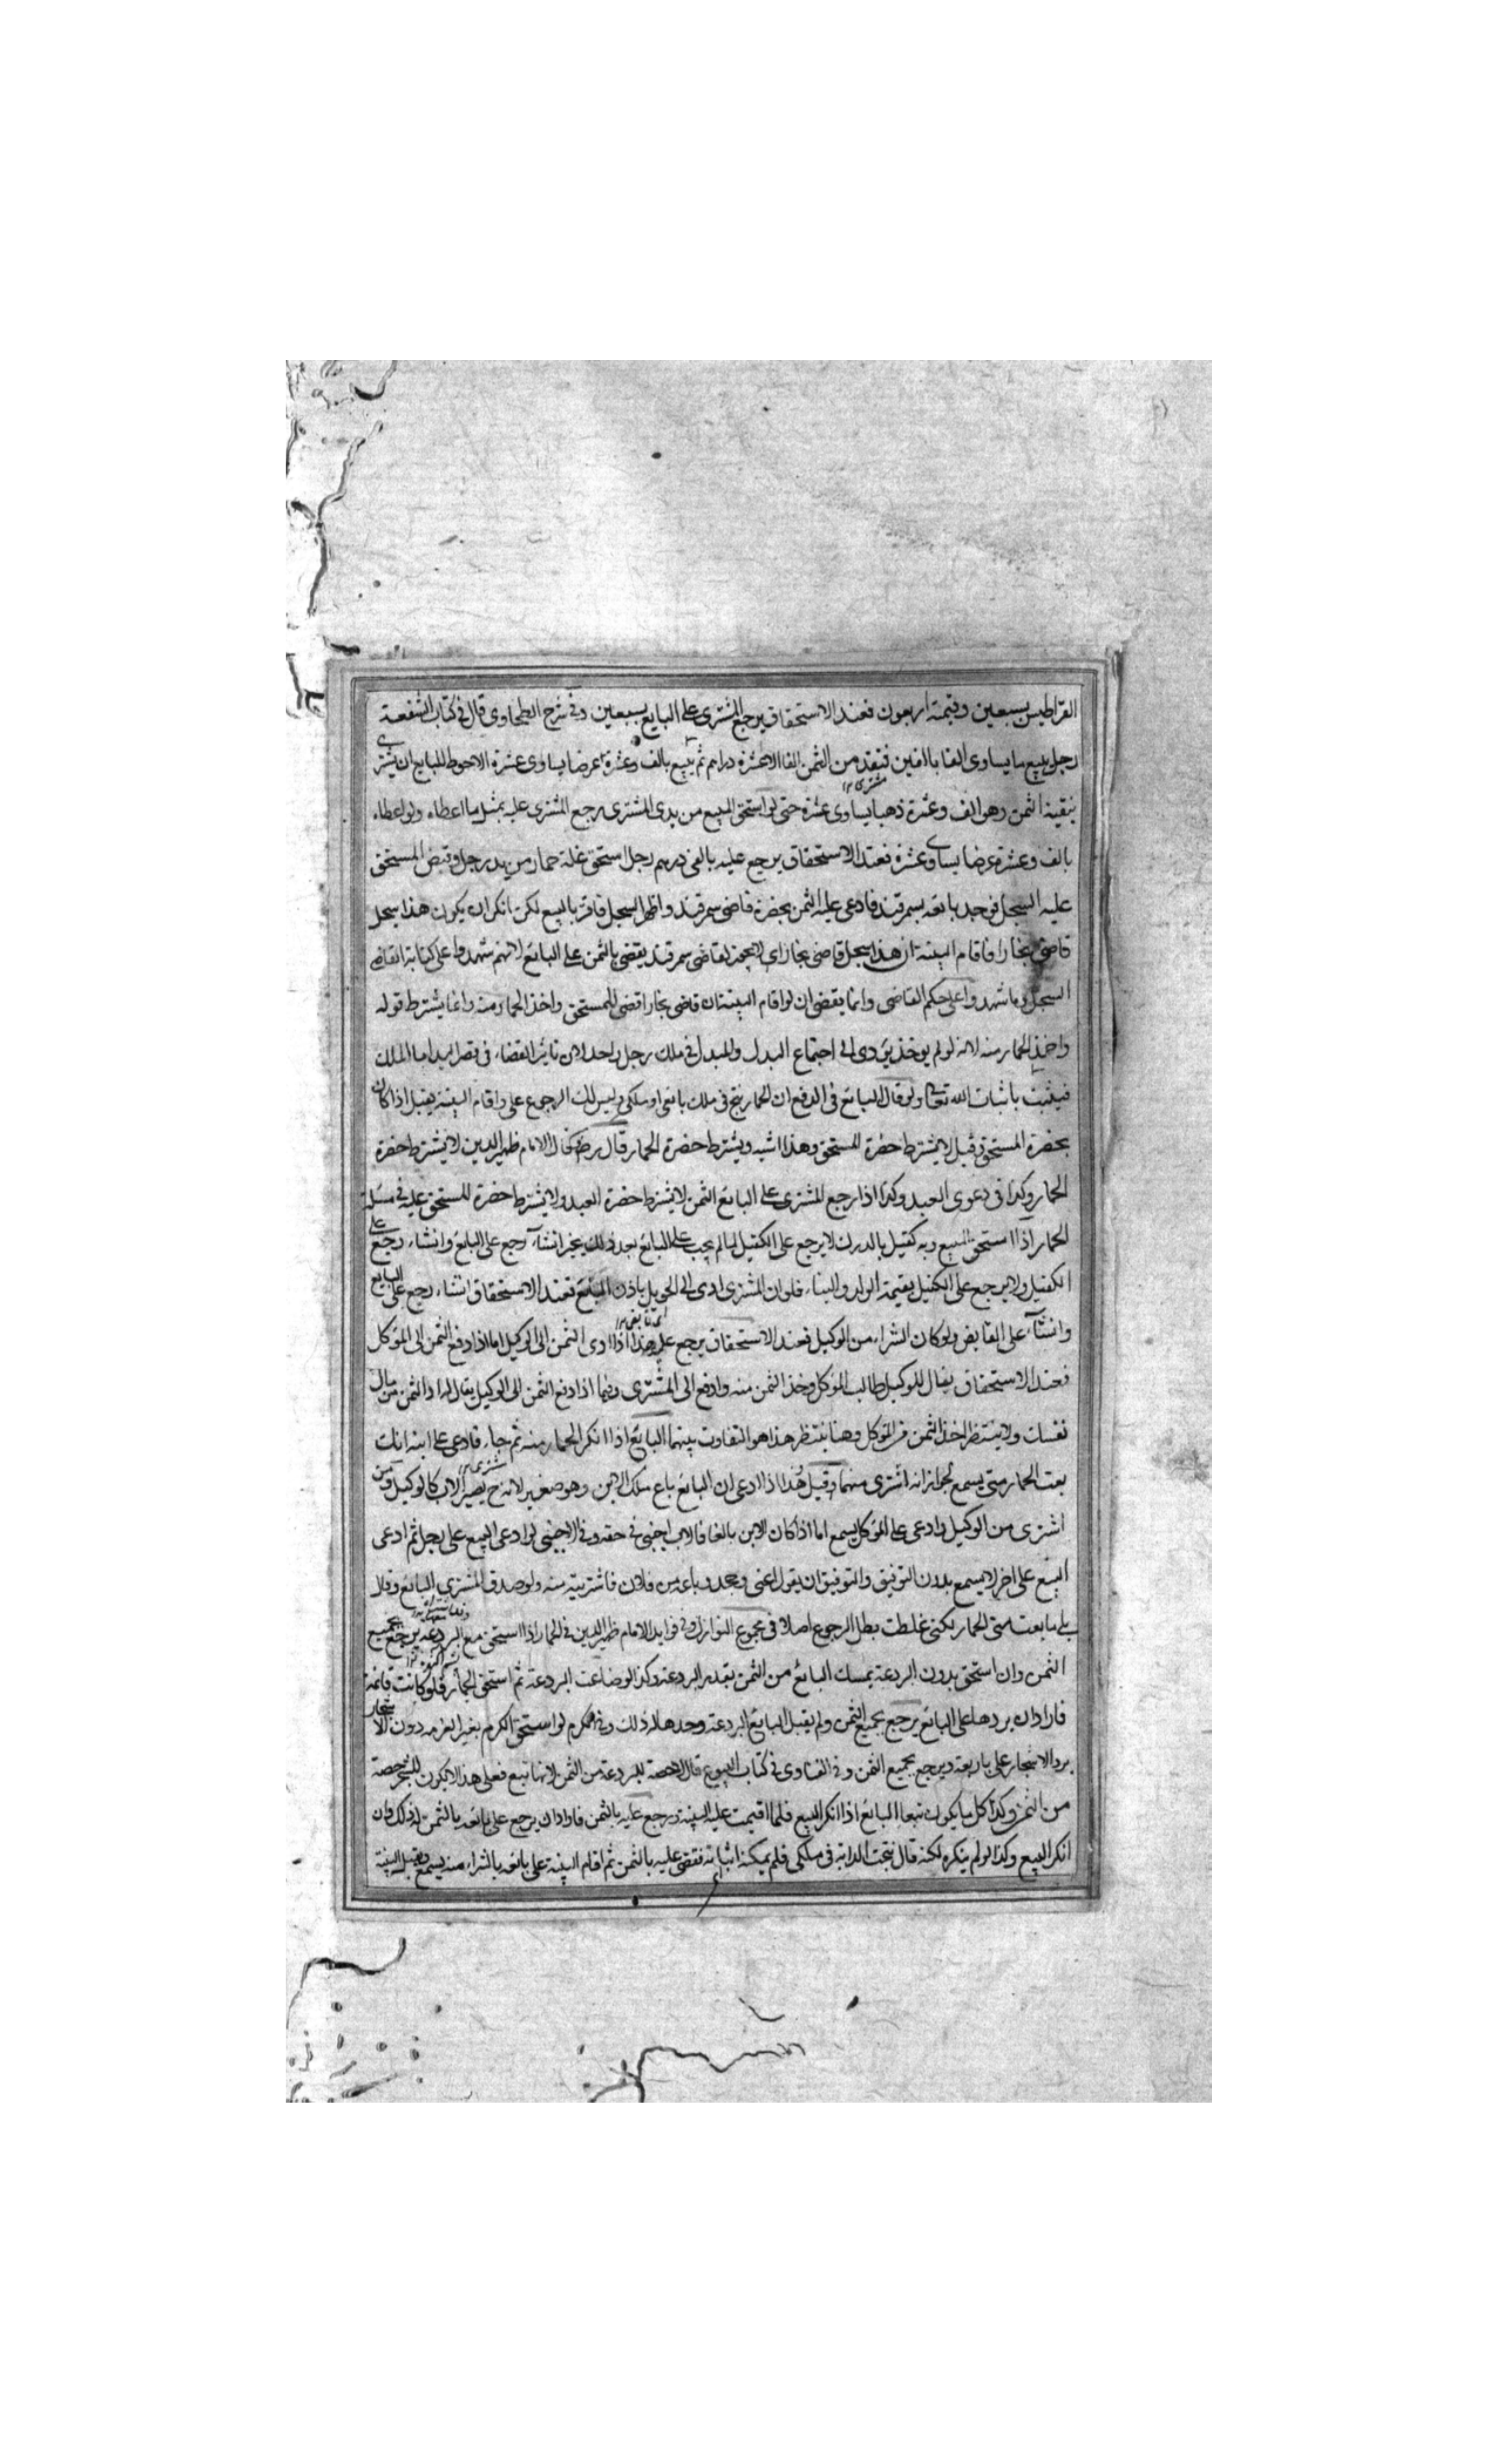 القراطيس بسبعين وقيمته اربعون فعند الاستحقاق يرجع المشترى على البايع بسبعين وفى شرح الطحاوى قال فى كتاب الشفعة
رجل يبيع ما يساوى الفا بالفين فينقد من الثمن الفا الا عشرة دراهم ثم يبيع بالف وعشرة عرضا يساوى عشرة الاحوط للبايع ان يشترى
ببقية الثمن وهو الف وعشرة ذهبا يساوى عشرة حتى لو استحق المبيع من يدى المشترى يرجع المشترى عليه بمثل ما اعطاه ولو اعطاه
بالف وعشرة عرضا يساوى عشرة فعند الاستحقاق يرجع عليه بالفى درهم رجل استحق عليه حمار من يد رجل وقبض المستحق
عليه السجل فوجد بايعه بسمرقند فادعى عليه الثمن بحضرة قاضى سمرقند واظهر السجل فاقر بالبيع لكن انكر ان يكون هذا سجل
قاضى بخارا فاقام البينة ان هذا سجل قاضى بخارا لا يجوز لقاضى سمرقند يقضى بالثمن على البائع لانهم شهدوا على كتابة القاضى
السجل وما شهدوا على حكم القاضى وانما يقضى ان لو اقام البينة ان قاضى بخارا قضى للمستحق واخذ الحمار منه وانما يشترط قوله
واخذ الحمار منه لانه لو لم يوخذ يؤدى الى اجتماع البدل والمبدل فى ملك رجل واحد لان تاثير القضاء فى قصر اليد اما الملك
فيثبت باثبات الله تعالى ولو قال البائع فى الدفع ان الحمار نتج فى ملك بائعى او ملكى وليس لك الرجوع على واقام البينة يقبل اذا كان
بحضرة المستحق وقيل لا يشترط حضرة المستحق وهذا اشبه ويشترط حضرة الحمار قال رضى الله عنه قال الامام ظهير الدين لا يشترط حضرة
الحمار وكذا فى دعوى العبد وكذا اذا رجع المشترى على البائع الثمن لا يشترط حضرة العبد ولا يشترط حضرة المستحق عليه فى مسئلة
الحمار اذا استحق المبيع وبه كفيل بالدرك لا يرجع على الكفيل ما لم يجب على البائع بعد ذلك يخير ان شاء رجع على البائع وان شاء رجع على
الكفيل ولا يرجع على الكفيل بقيمة الولد والبناء فلو ان المشترى ادى الى الحويل باذن البائع فعند الاستحقاق ان شاء رجع على البايع
وان شاء على القابض ولو كان الشراء من الوكيل فعند الاستحقاق يرجع عليه وهذا اذا ادى الثمن الى الوكيل اما اذا دفع الثمن الى الموكل
فعند الاستحقاق يقال للوكيل طالب الموكل وخذ الثمن منه وادفع الى المشترى وفيما اذا دفع الثمن الى الوكيل يقال له اد الثمن من مال
نفسك ولا ينتظر اخذ الثمن من الموكل وهنا ينتظر هذا هو التفاوت بينهما البائع اذا انكر الحمار منه ثم جاء فادعى على ابنه انك
بعت الحمار منى يسمع لجواز انه اشترى منهما وقيل هذا اذا ادعى ان البائع باع ملك الابن وهو صغير لانه ح يصير الاب كالوكيل ومن
اشترى من الوكيل وادعى على الموكل يسمع اما اذا كان الابن بالغا فالاب اجنبى فى حقه وفى الاجنبى لو ادعى البيع على رجل ثم ادعى
البيع على اخر لا يسمع بدون التوفيق والتوفيق ان يقول باعنى وجحد وباعه من فلان فاشتريته منه ولو صدق المشترى البائع وقال
بلى ما بعت منى الحمار لكنى غلطت بطل الرجوع اصلا فى مجموع النوازل وفى فوايد الامام ظهير الدين فى الحمار اذا استحق مع البردعة يرجع بجميع
الثمن وان استحق بدون البردعة يمسك البائع من الثمن بقدر البردعة وكذا لو ضاعت البردعة ثم استحق الحمار فلو كانت قائمة
فاراد ان يردها على البائع يرجع بجميع الثمن ولم يقبل البايع البردعة وحدها له ذلك وفى الكرم لو استحق الكرم بغير الغرمه دون الاشجار
يرد الاشجار على بايعه ويرجع بجميع الثمن وفى الفتاوى فى كتاب البيوع قال لا حصة للبردعة من الثمن لانها تبع فعلى هذا لا يكون للشجر حصة
من الثمن وكذا كل ما يكون تبعا البائع اذا انكر البيع فلما اقيمت عليه البينة ورجع عليه بالثمن فاراد ان يرجع على بائعه بالثمن له ذلك وان
انكر البيع وكذا لو لم ينكره لكنه قال نتجت الدابة فى ملكى فلم يمكنه اثباته فقضى عليه بالثمن ثم اقام البينة على بائعه بالشراء منه يسمع ويقبل البينة